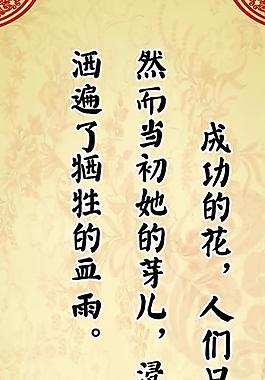 成功的花，人们
然而当初她的芽儿，浸
洒遍了牺牲的血雨。